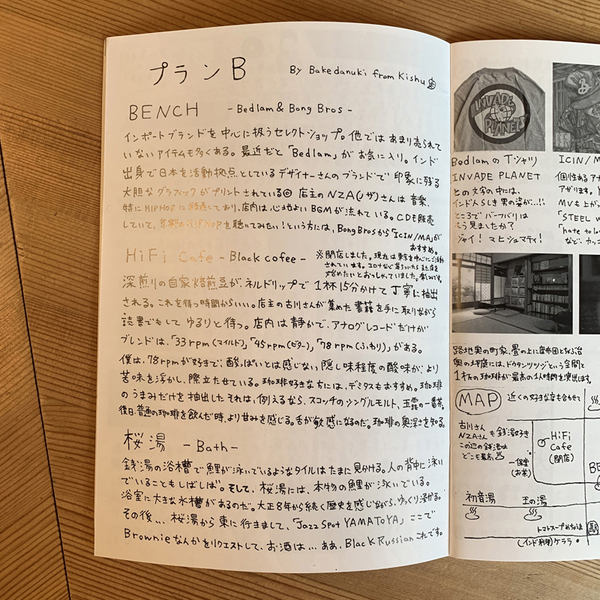 プランB By Bakedanuki from Kishu
BENCH - Bedlam & Bong Bros -
インポートブランドを中心に扱うセレクトショップ。他ではあまり売られて
いないアイテムも多くある。最近だと「Bedlam」がお気に入り。インド
出身で日本を活動拠点としているデザイナーさんのブランドで印象に残る
大胆なグラフィックがプリントされている◎ 店主のNZA(ノザ)さんは音楽、
特にHIPHOPに精通しており、店内は心地よいBGMが流れている。CDも販売
していて、年期のHIPHOPを聴いてみたい!という方には、Bong Brosから「ICIN/MA」が
おすすめ。
HiFi Cafe - Black cofee -
※閉店しました。現在は東京を中心に活動
されています。コロナなど落ちついたらまた店を
始めたいとおっしゃっていました。
深煎りの自家焙煎豆がネルドリップで1杯15分かけて丁寧に抽出
される。これを待つ時間がいい。店主の古川さんが集めた書籍を手に取りながら
読書でもして ゆるりと待つ。店内は静かで、アナログレコードだけが
ブレンドは、「33rpm(マイルド)」「45rpm(ビター)」「78rpm(ふわり)」がある。
僕は、78rpmが好きで、酸っぱいとは感じない隠し味程度の酸味が、より
苦味を浮かし、際立たせている。珈琲好きな方には、デミタスもおすすめ。珈琲
のうまみだけを抽出したそれは、例えるなら、スコッチのシングルモルト、玉露の一番茶。
後日、普通の珈琲を飲んだ時、より甘みを感じる。舌が敏感になるのだ。珈琲の奥深さを知る。
桜湯 - Bath -
銭湯の浴槽で鯉が泳いでいるようなタイルはたまに見かける。人の背中に泳い
でいることもしばしば。そして、桜湯には、本物の鯉が泳いでいる。
浴室に大きな水槽があるのだ。大正8年から続く歴史を感じながら、ゆっくり浸かる。
その後... 桜湯から東に行きまして、「Jazz Spot YAMATOYA」ここで
Brownieなんかをリクエストして、お酒は... ああ、Black Russianこれです。
INVADE PLANET
BedlamのTシャツ
INVADE PLANET
との文字の中には、
インドんらしき男の姿が...!!
ところでバーフバリは
もう見ましたか?
ジャイ! マヒシュマティ!
ICIN/M
個性ある
アガります。
MVも上が
「STEEL W
「hate to lo
など、カッ
路地奥の町家、畳の上に座布団と
1杯の珈琲が
MAP
近くの好きな店をあわせて
古川さん
NZAさんも銭湯好き
この辺の銭湯は
どこも最高
HiFi
Cafe
(閉店)
一保堂
(お茶)
BE
初音湯
玉の湯
トマトスープめちゃうま
(インド料理)ケララ